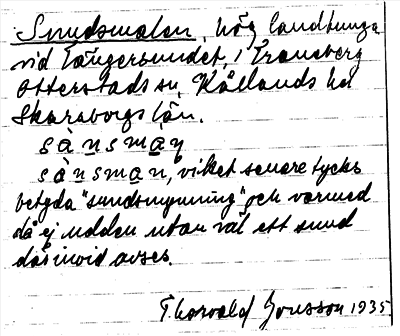 Sundsmalen, hög landtunga
vid Tängersundet, i Traneberg
Otterstads sn, Kållands hd
Skaraborgs län.
sànsmaṇ
sànsman, vilket senare tycks
betyda "sundsmynning" och varmed
då ej udden utan väl ett sund
därinvid avses.
Thorvald Jonsson 1935